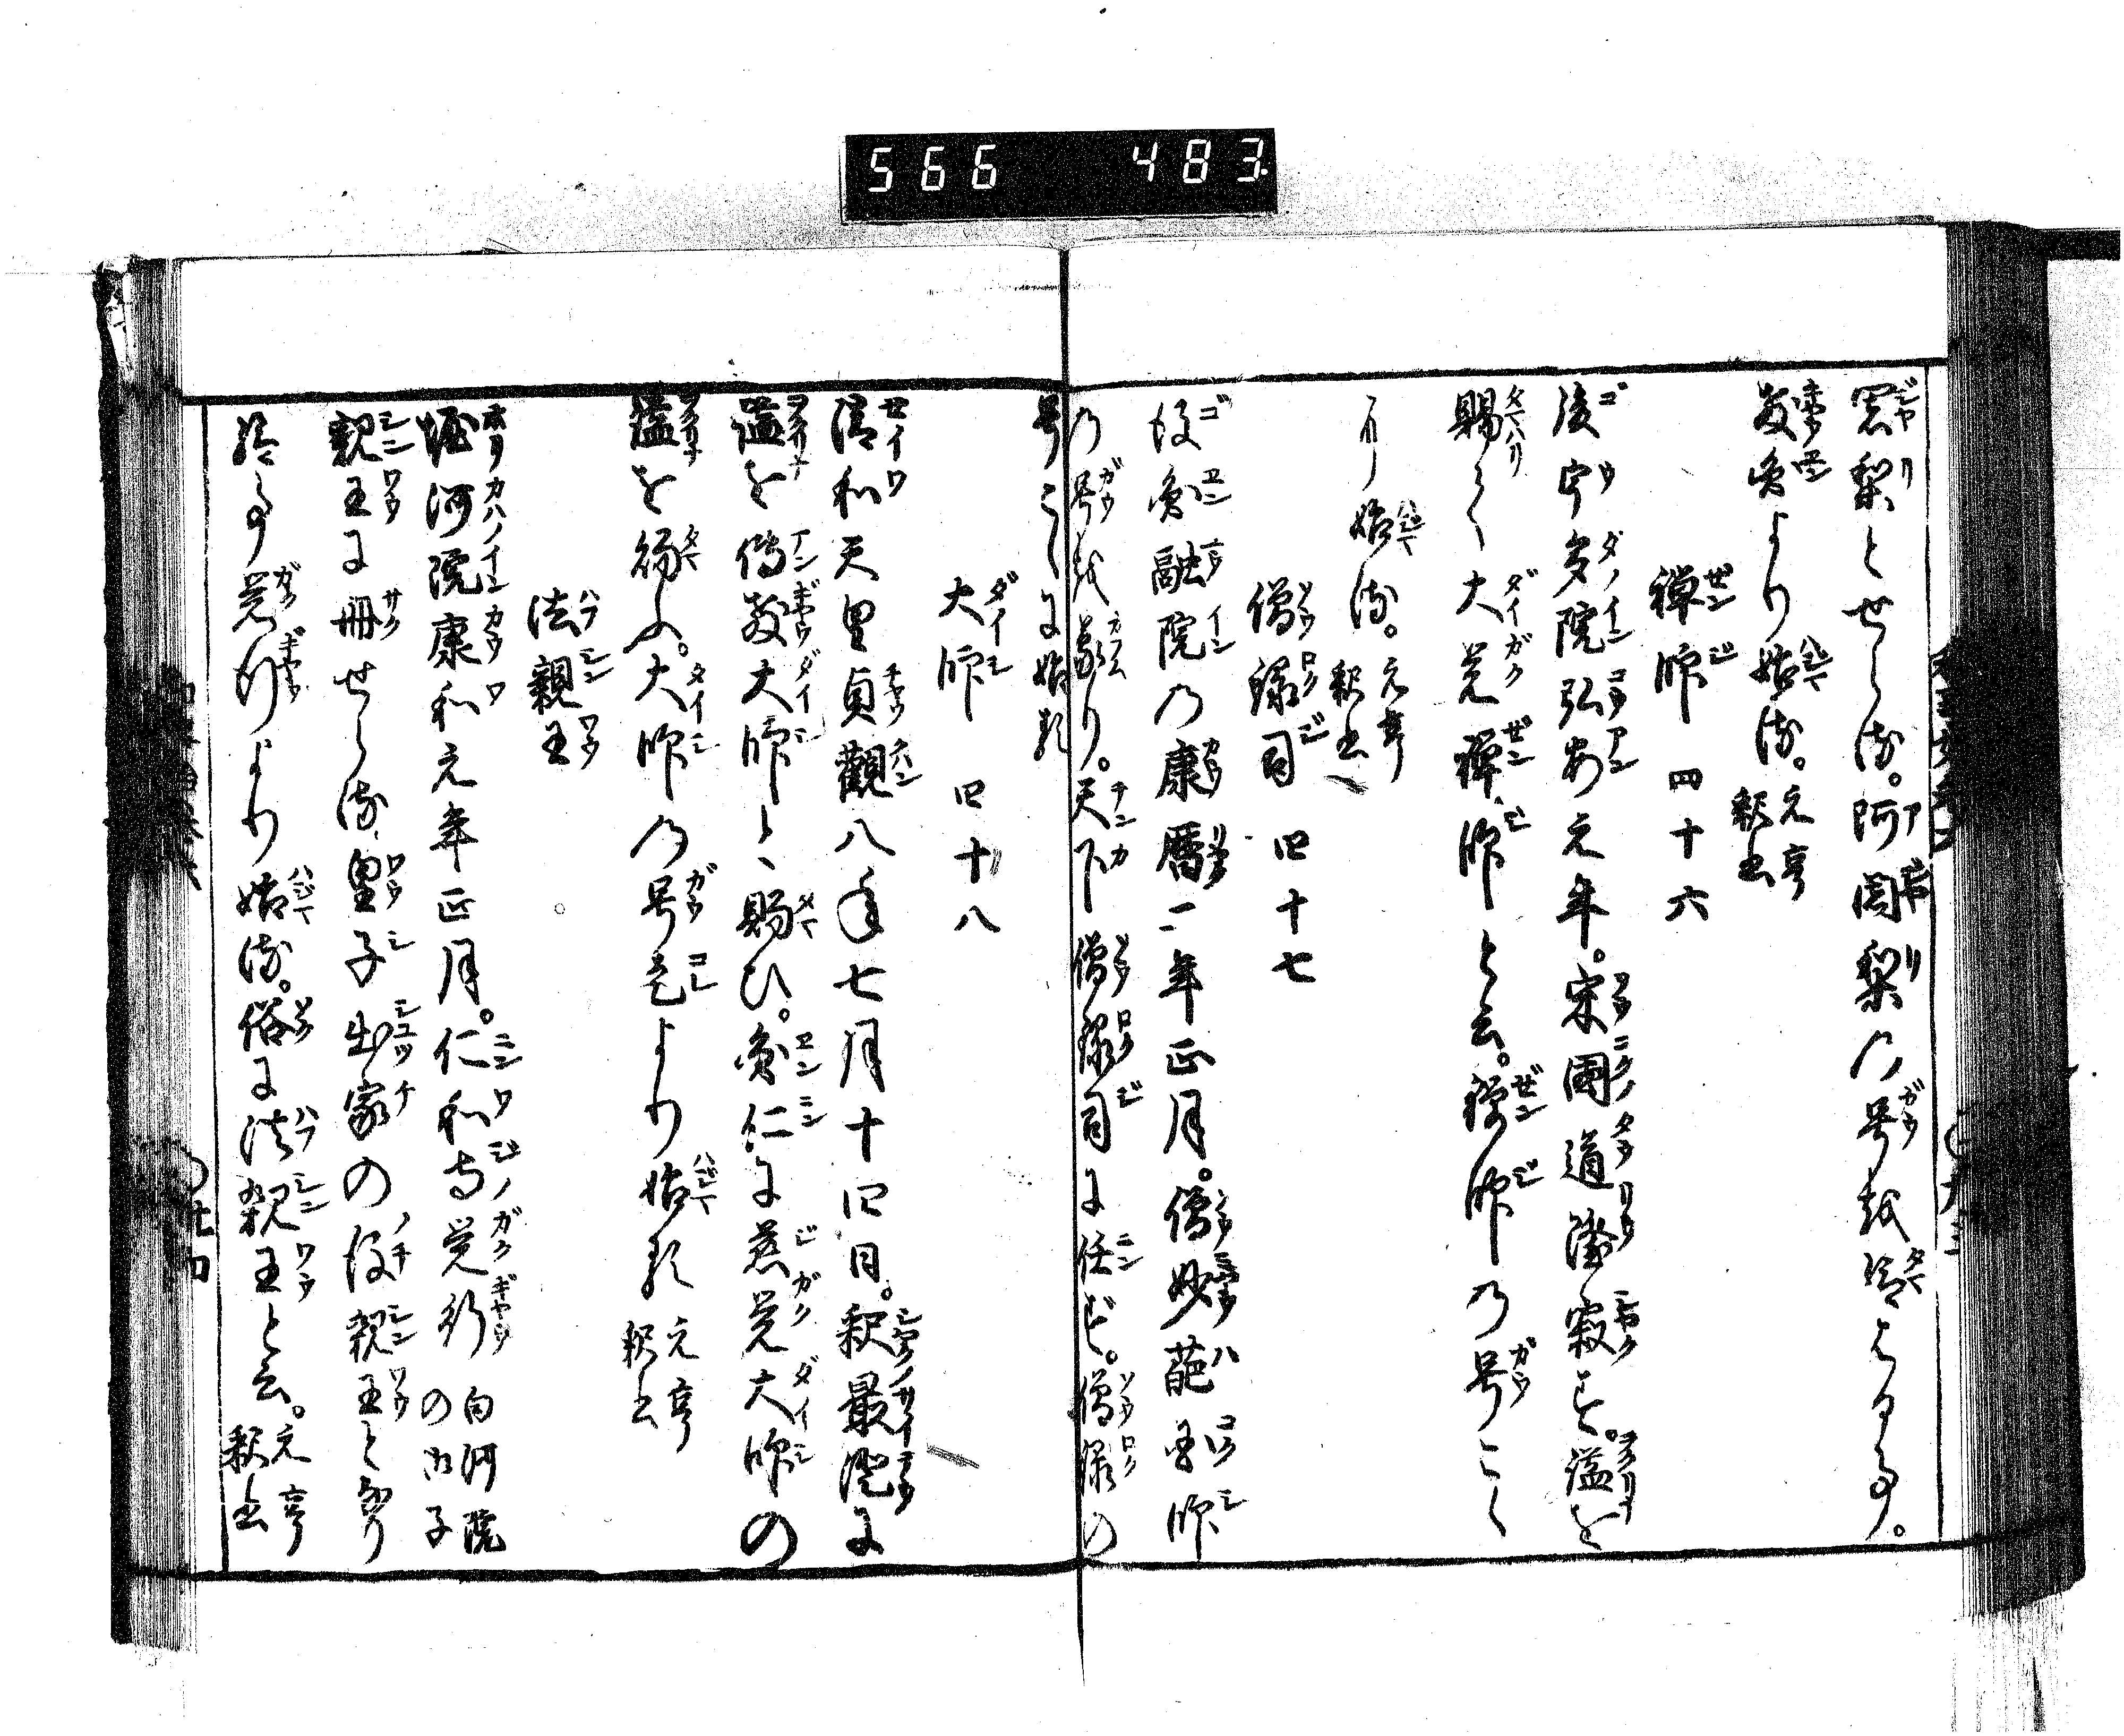 566 483
闍梨とせらる。阿闍梨の号を給はる事。
教円より始る。元亨釈書
禅師 四十六
後宇多院弘安元年。宋国道隆寂す。謚を
賜りて大覚禅師と云。禅師の号こゝ
に始る。元亨釈書
僧録司 四十七
後円融院の康暦二年正月。僧妙葩国師
の号を蒙り。天下僧録司に任ず。僧録の
号こゝに始る
大師 四十八
清和天皇貞観八年七月十四日。釈最澄に
謚を伝教大師と賜ひ。円仁に慈覚大師の
謚を賜ふ。大師の号是より始る 元亨釈書
法親王
堀河院康和元年正月。仁和寺覚行 白河院の御子
親王に冊せらる。皇子出家の後親王と成
給ふ事覚行より始る。俗に法親王と云。元亨釈書